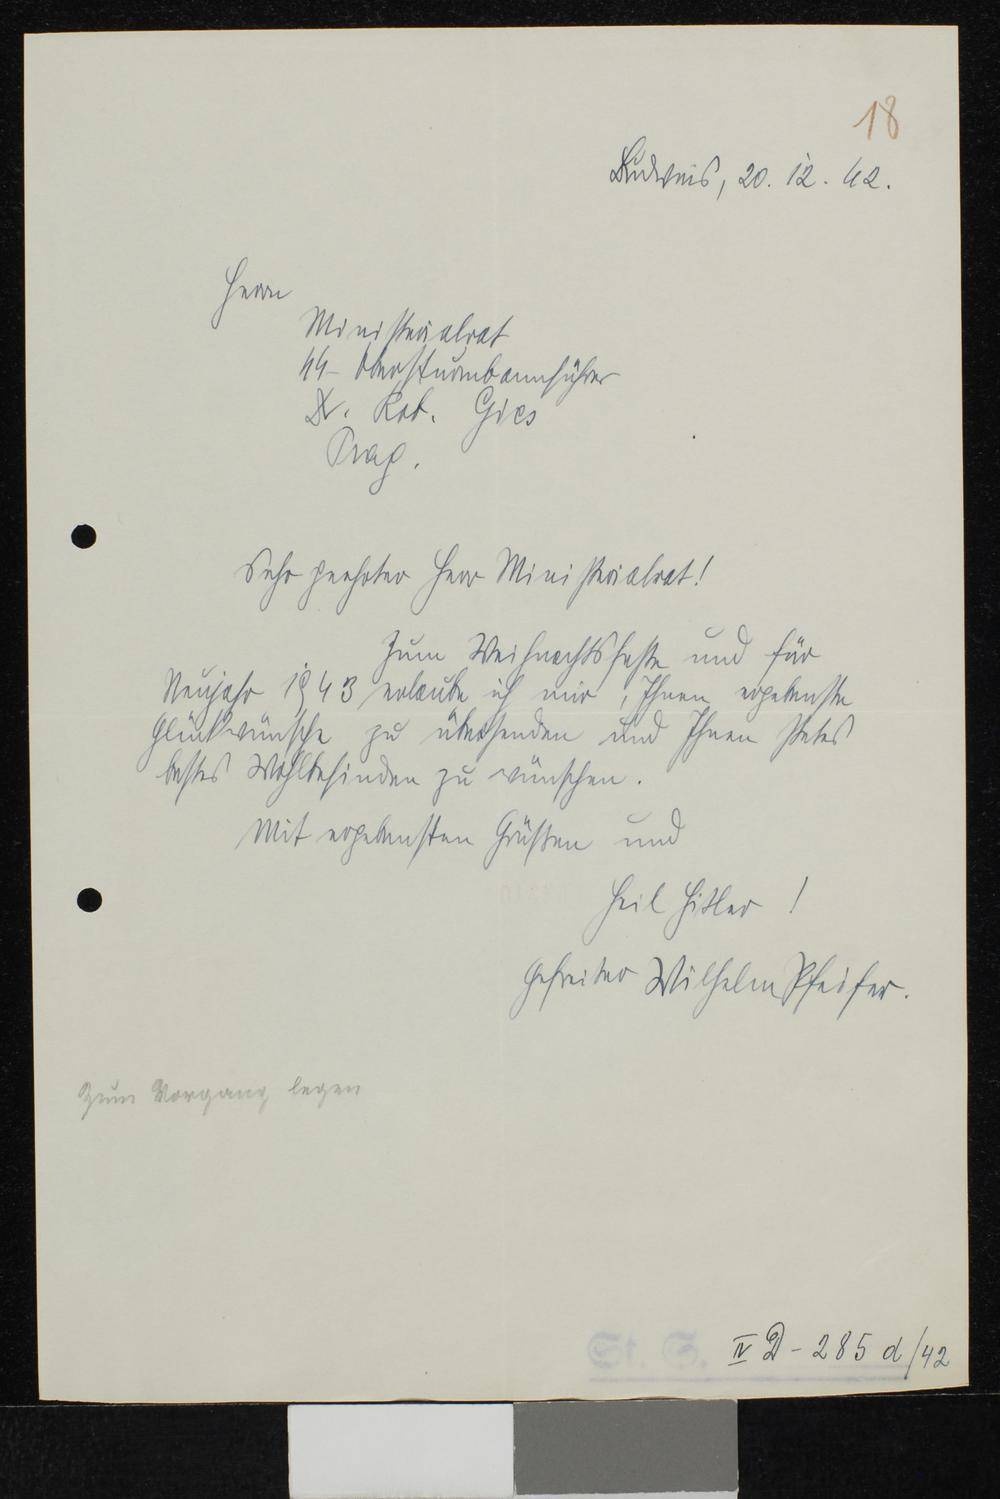 18
Budweis, 20. 12. 42.
Herrn
Ministerialrat
SS-Obersturmbannführer
Dr. Rob. Gies
Prag.
Sehr geehrter Herr Ministerialrat!
Zum Weihnachtsfeste und für
Neujahr 1943 erlaube ich mir, Ihnen ergebenste
Glückwünsche zu übersenden und Ihnen stetes
bestes Wohlbefinden zu wünschen.
Mit ergebensten Grüßen und
Heil Hitler!
Gefreiter Wilhelm Pfeifer.
Zum Vorgang legen
St. S. IV D - 285 d/42